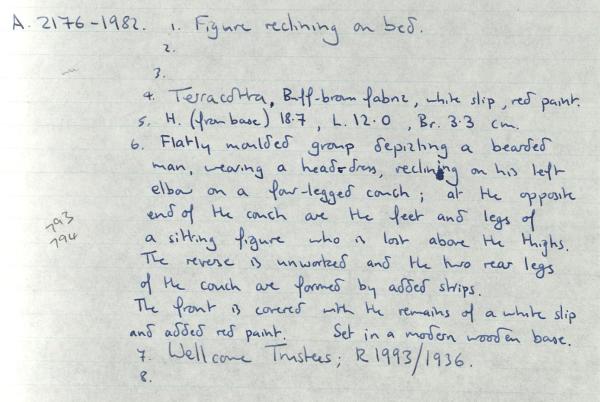 A. 2176-1982. 1. Figure reclining on bed.
2.
3.
4. Terracotta, Buff-brown fabric, white slip, red paint.
5. H. (from base) 18.7, L. 12.0, Br. 3.3 cm.
6. Flatly moulded group depicting a bearded
man, wearing a head-dress, reclining on his left
elbow on a four-legged couch; at the opposite
end of the couch are the feet and legs of
a sitting figure who is lost above the thighs.
The reverse is unworked and the two rear legs
of the couch are formed by added strips.
The front is covered with the remains of a white slip
and added red paint. Set in a modern wooden base.
7. Wellcome Trustees; R1993/1936.
8.
793
794